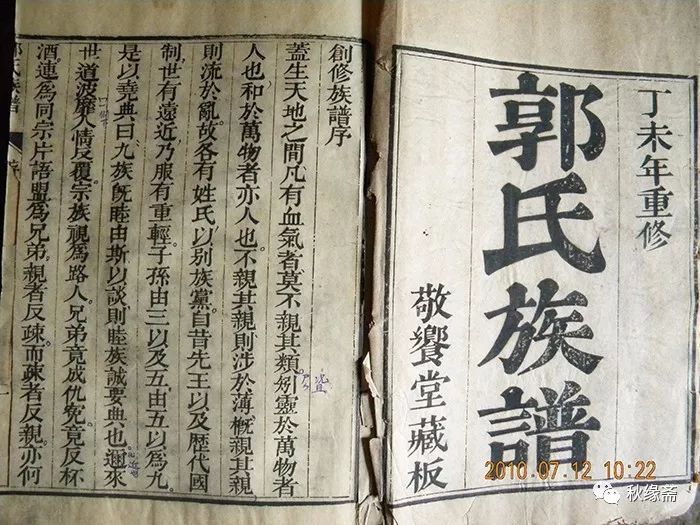 丁未年重修
郭氏族譜
敬饗堂藏板
創修族譜序
蓋生天地之間凡有血氣者莫不親其類。矧靈於萬物者
人也。和於萬物者亦人也。不親其親則涉於薄。概親其親。
則流於亂。故各有姓氏以別族黨。自昔先王以及歷代國
制。世有遠近乃服有重輕。子孫由三以及五。由五以爲九。
是以堯典曰。九族旣睦。由斯以談。則睦族誠要典也。邇來
世道波靡。人情反覆。宗族視爲路人。兄弟竟成仇寃。竟反杯
酒。連爲同宗。片語盟爲兄弟。親者反疎。而疎者反親。亦何
氏族譜
序
2010.07.12 10:22
秋缘斋